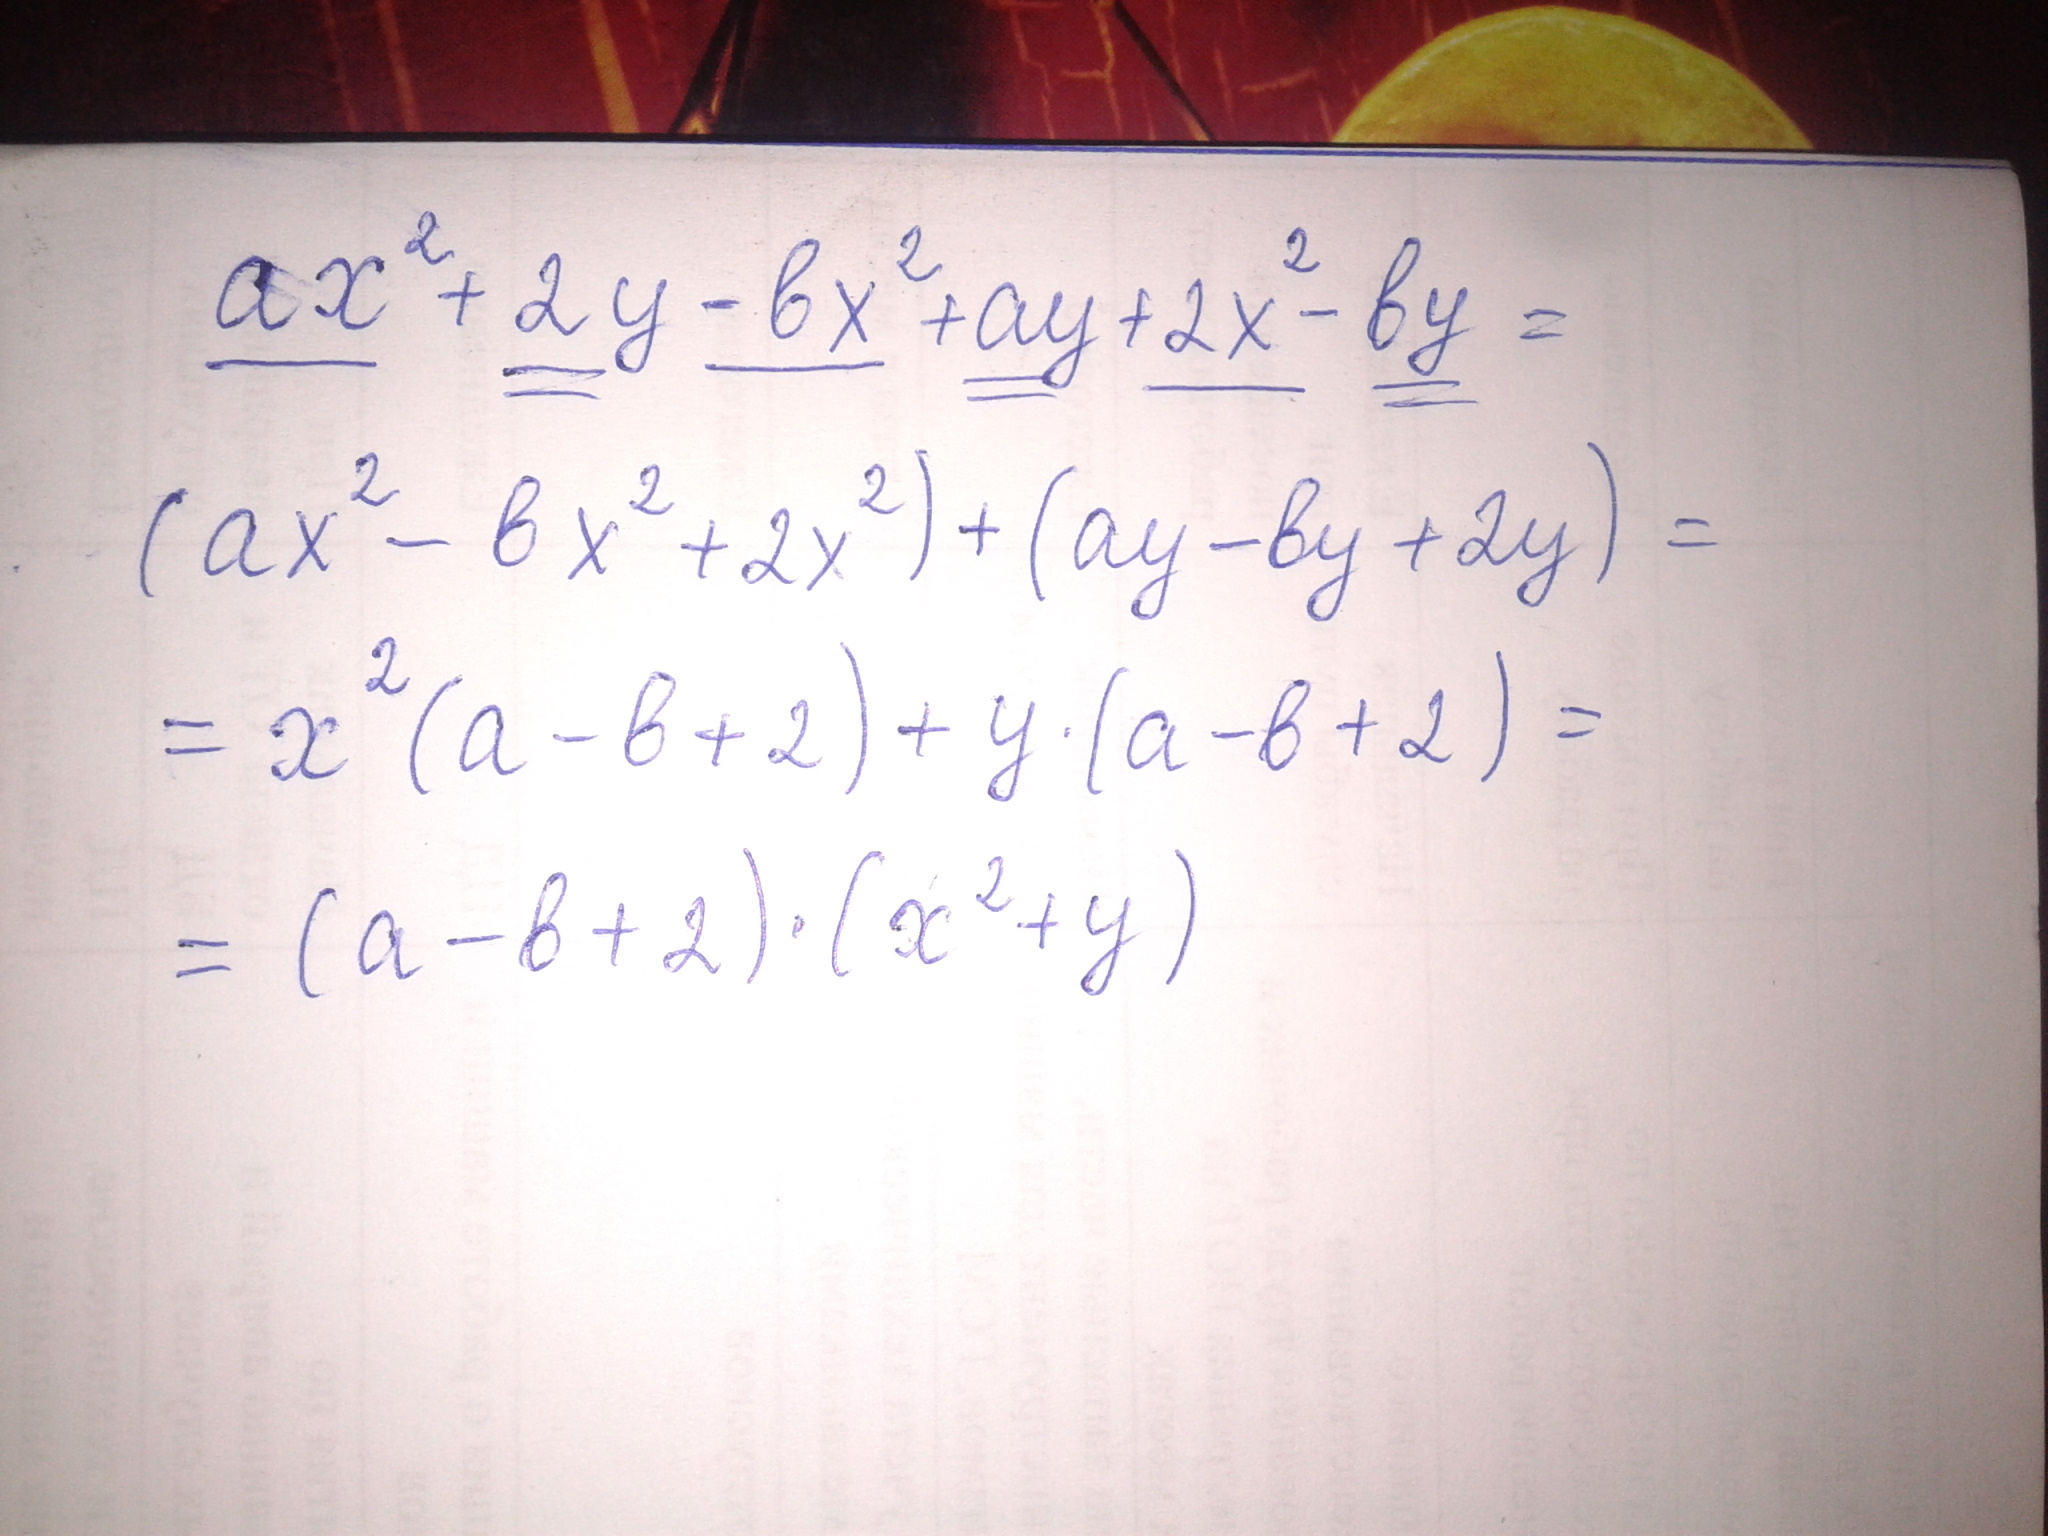 ax²+2y-bx²+ay+2x²-by=
(ax²-bx²+2x²)+(ay-by+2y)=
=x²(a-b+2)+y·(a-b+2)=
=(a-b+2)·(x²+y)